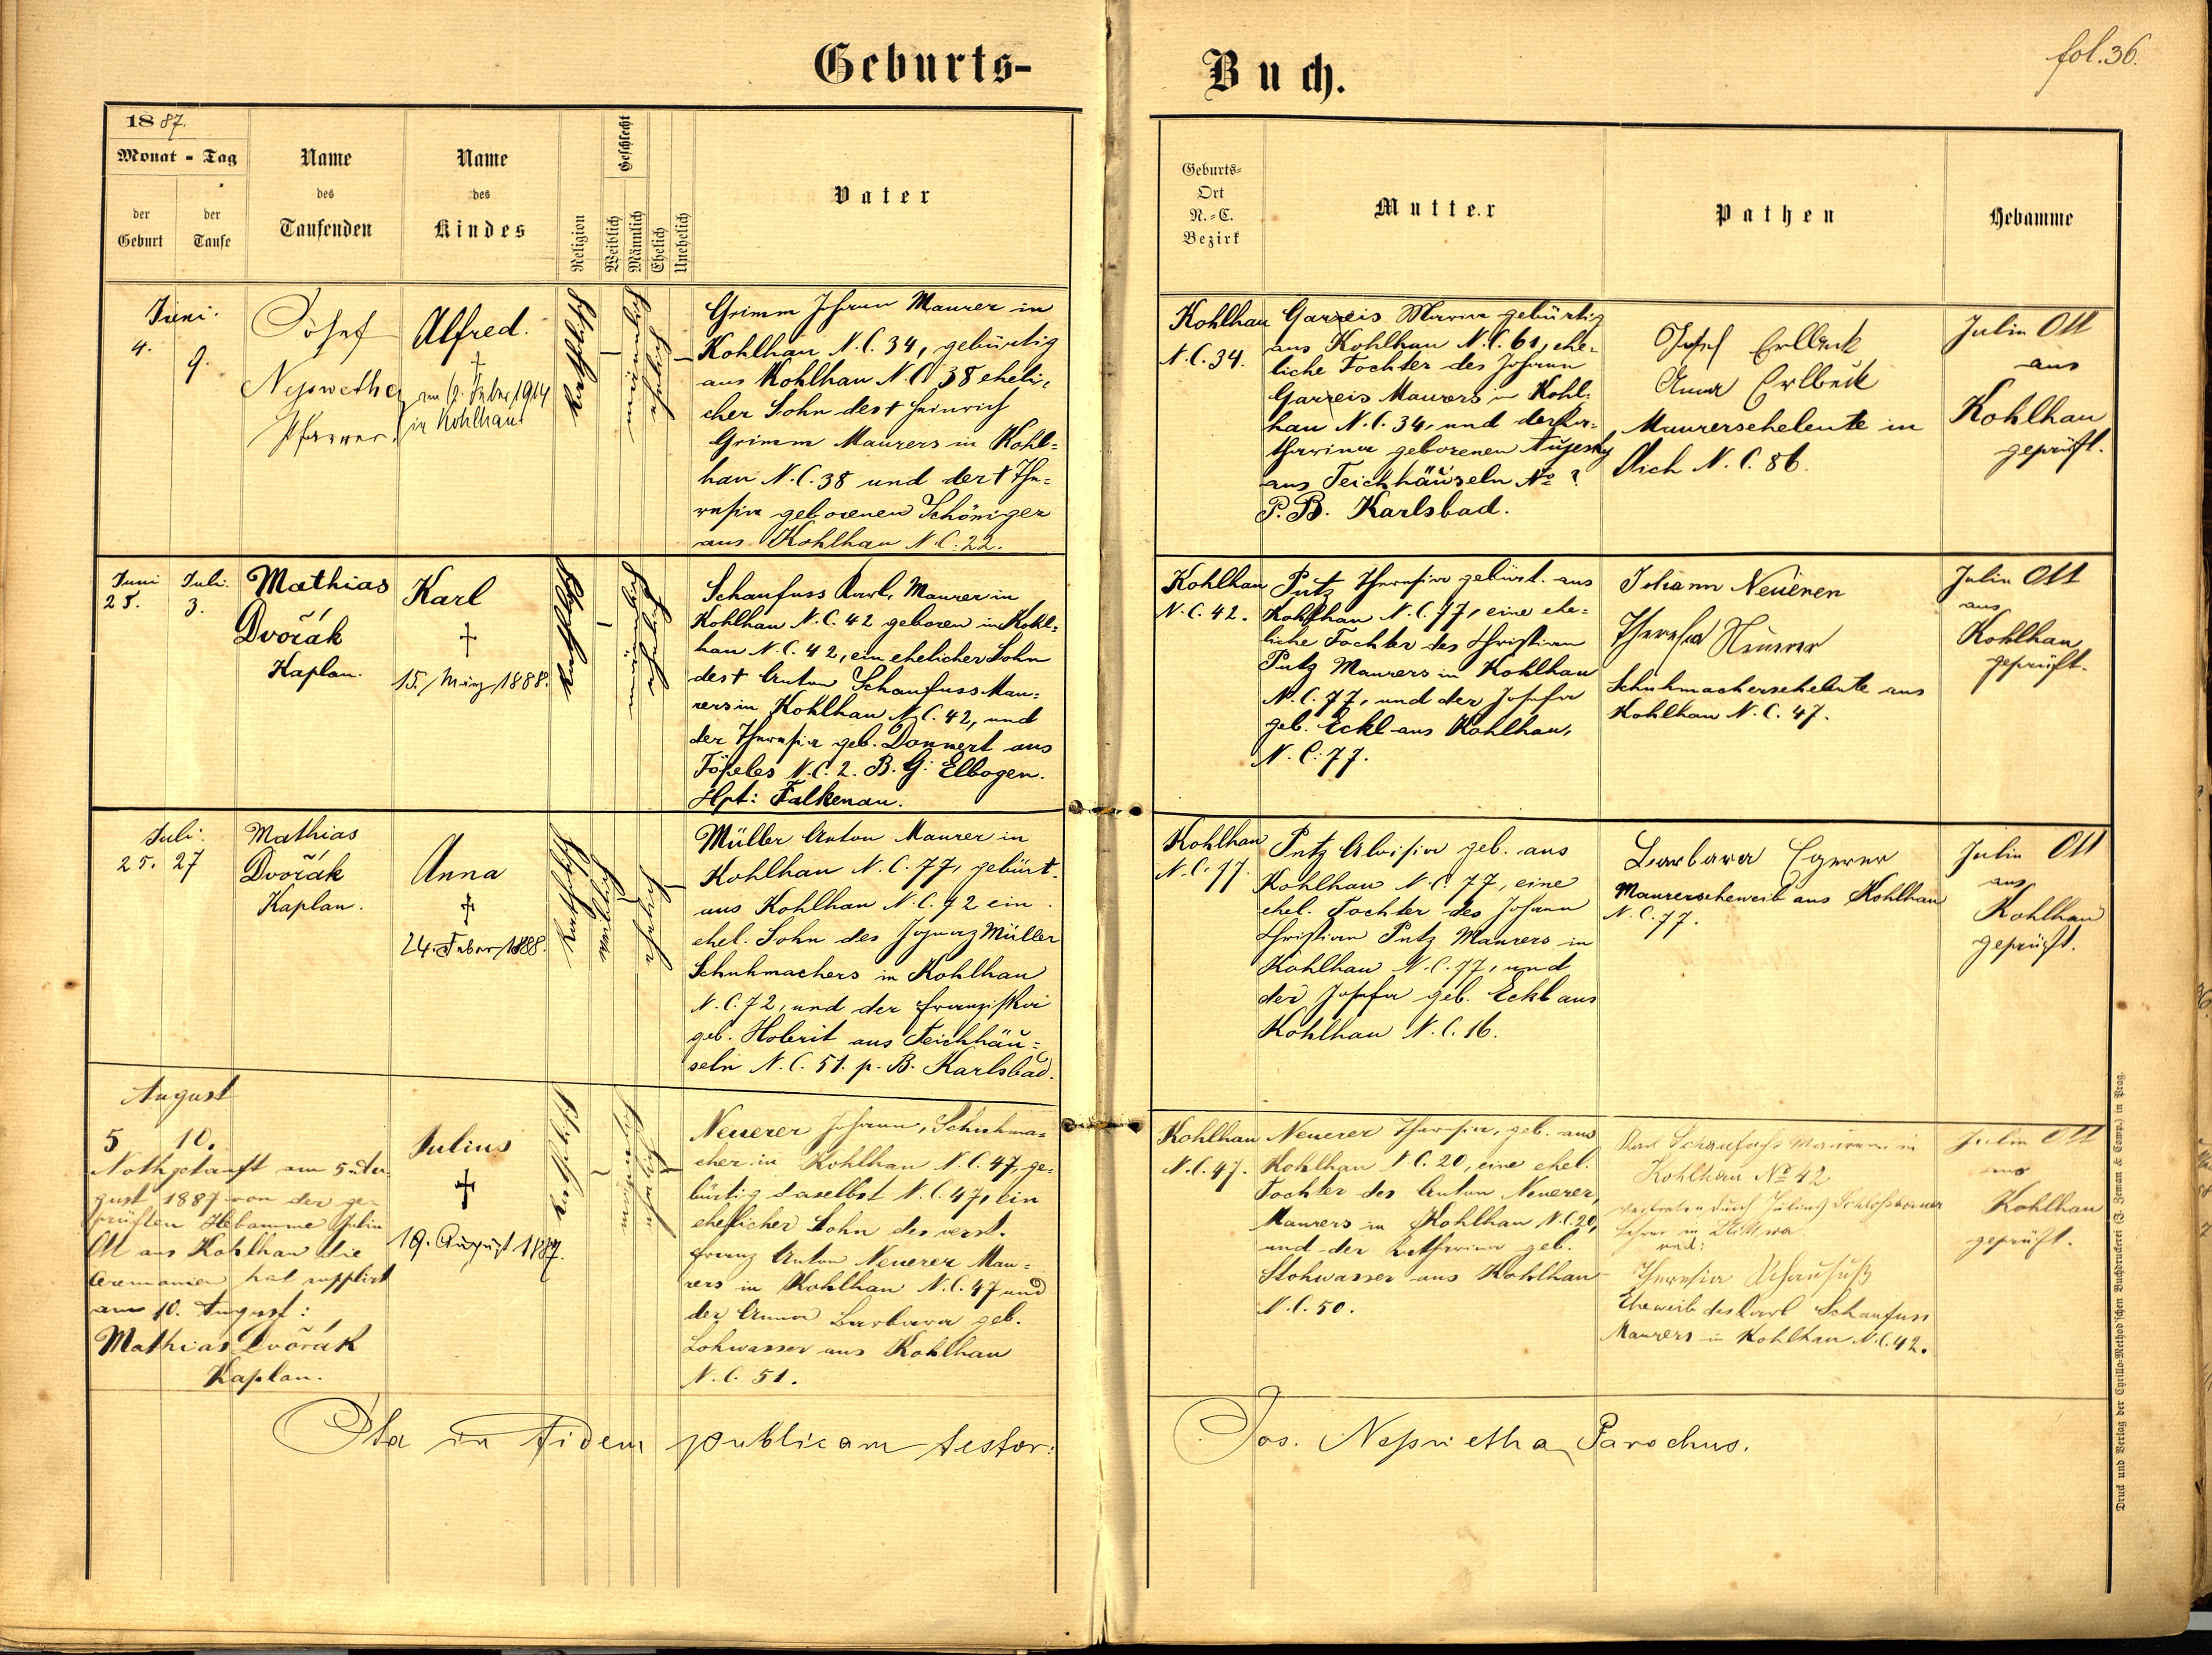 Geburts-
Buch.
fol. 36.
1887.
Monat - Tag
der Geburt
der Taufe
Name
des
Taufenden
Name
des
Kindes
Religion
Geschlecht
Weiblich
Männlich
Ehelich
Unehelich
Vater
Geburts-
Ort
N.-C.
Bezirk
Mutter
Pathen
Hebamme
Juni.
4.
9.
Josef
Pfarrer.
Alfred.
†
1914
in Kohlhau
katholisch
männlich
ehelich
Grimm Johann Maurer in
Kohlhau N.C. 34, gebürtig
aus Kohlhau N.C. 38 eheli-
cher Sohn des † Heinrich
Grimm Maurers in Kohl=
hau N.C. 38 und der † The=
resia geborenen Schöniger
aus Kohlhau N.C. 22.
Kohlhau
N.C. 34.
Garreis Maria gebürtig
aus Kohlhau N.C. 61, ehe=
liche Tochter des Johann
Garreis Maurers in Kohl=
hau N.C. 34, und der Ka=
tharina geborenen
aus Teichhäuseln No ?
P.B. Karlsbad.
Josef Erlbeck
Anna Erlbeck
Maurerseheleute in
Aich N.C. 86.
Julia Ott
aus
Kohlhau
geprüft.
Juni
25.
Juli.
3.
Mathias
Dvořák
Kaplan.
Karl
†
15. März 1888.
katholisch
männlich
ehelich
Schaufuss Karl, Maurer in
Kohlhau N.C. 42 geboren in Kohl=
hau N.C. 42, ein ehelicher Sohn
des † Anton Schaufuss Mau=
rers in Kohlhau N.C. 42, und
der Theresia geb. Donnert aus
Töpeles N.C. 2. B.G: Elbogen.
Hpt: Falkenau.
Kohlhau
N.C. 42.
Putz Theresia gebürt. aus
Kohlhau N.C. 77, eine ehe=
liche Tochter des Christian
Putz Maurers in Kohlhau
N.C. 77, und der Josefa
geb. Eckl aus Kohlhau,
N.C. 77.
Johann Neuerer
Theresia Neuerer
Schuhmacherseheleute aus
Kohlhau N.C. 47.
Julia Ott
aus
Kohlhau
geprüft.
Juli.
25. 27
Mathias
Dvořák
Kaplan.
Anna
†
24. Feber 1888.
katholisch
weiblich
ehelich
Müller Anton Maurer in
Kohlhau N.C. 77, gebürt.
aus Kohlhau N.C. 72 ein
ehel. Sohn des Ignaz Müller
Schuhmachers in Kohlhau
N.C. 72, und der Franziska
geb. Holerit aus Teichhäu=
seln N.C. 51. p. B. Karlsbad.
Kohlhau
N.C. 77.
Putz Aloisia geb. aus
Kohlhau N.C. 77, eine
ehel. Tochter des Johann
Christian Putz Maurers in
Kohlhau N.C. 77, und
der Josefa geb. Eckl aus
Kohlhau N.C. 16.
Barbara Egerer
Maurerseheweib aus Kohlhau
N.C. 77.
Julia Ott
aus
Kohlhau
geprüft.
August
5 10.
Nothgetauft am 5. Au-
gust 1887 von der ge-
prüften Hebamme Julia
Ott aus Kohlhau die
Ceremonien hat supplirt
am 10. August:
Mathias Dvořák
Kaplan.
Julius
†
19. August 1887.
katholisch
männlich
ehelich
Neuerer Johann, Schuhma=
cher in Kohlhau N.C. 47, ge=
bürtig daselbst N.C. 47, ein
ehelicher Sohn des verst.
Franz Anton Neuerer Mau=
rers in Kohlhau N.C. 47 und
der Anna Barbara geb.
Lohwasser aus Kohlhau
N.C. 51.
Kohlhau
N.C. 47.
Neuerer Theresia, geb. aus
Kohlhau N.C. 20, eine ehel.
Tochter des Anton Neuerer,
Maurers in Kohlhau N.C. 20,
und der Katharina geb.
Stohwasser aus Kohlhau
N.C. 50.
Karl Schaufuss Maurer in
Kohlhau No 42
vertreten durch Julius
Lehrer in
und:
Theresia Schaufuß
Eheweib des Karl Schaufuss
Maurers in Kohlhau N.C. 42.
Julia Ott
aus
Kohlhau
geprüft.
Ita in fidem publicam testor:
Jos. Parochus.
Druck und Verlag der Cyrillo-Method'schen Buchdruckerei (J. Zeman & Comp.) in Prag.